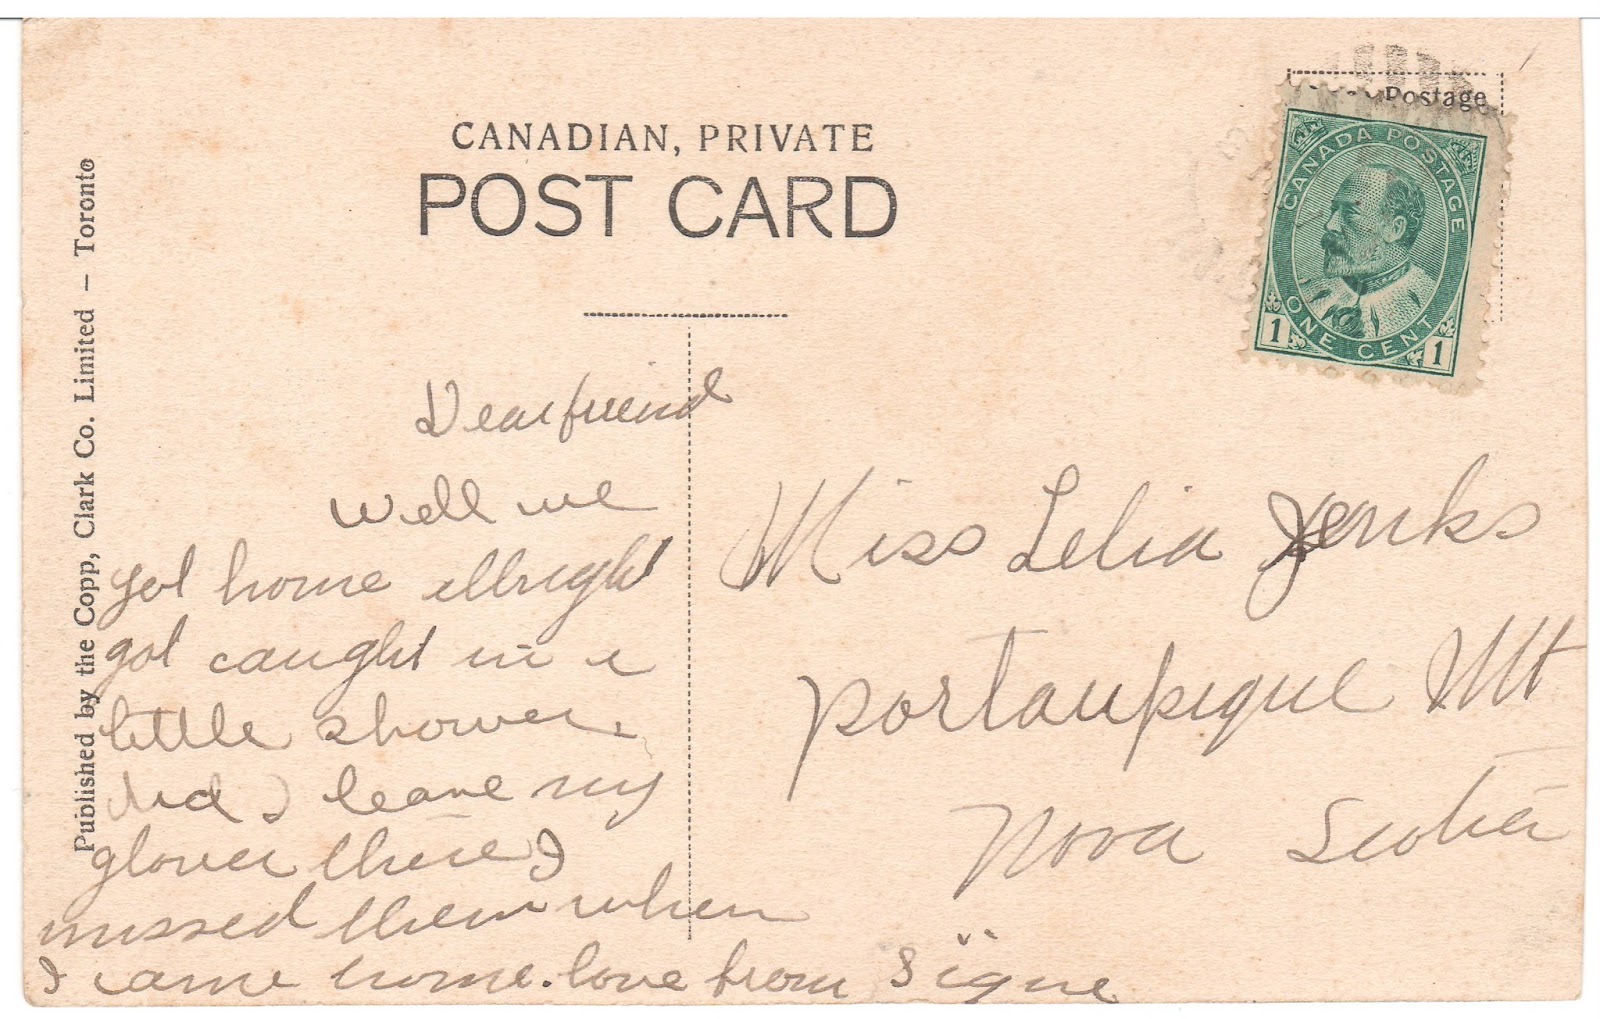 CANADIAN, PRIVATE
POST CARD
Postage
CANADA POSTAGE
ONE CENT
1 1
Published by the Copp, Clark Co. Limited – Toronto
Dear friend
Well we
got home allright
got caught in a
little shower.
Did I leave my
gloves there I
missed them when
I came home. love from Signe
Miss Lelia Jenks
Portaupique Mt
Nova Scotia